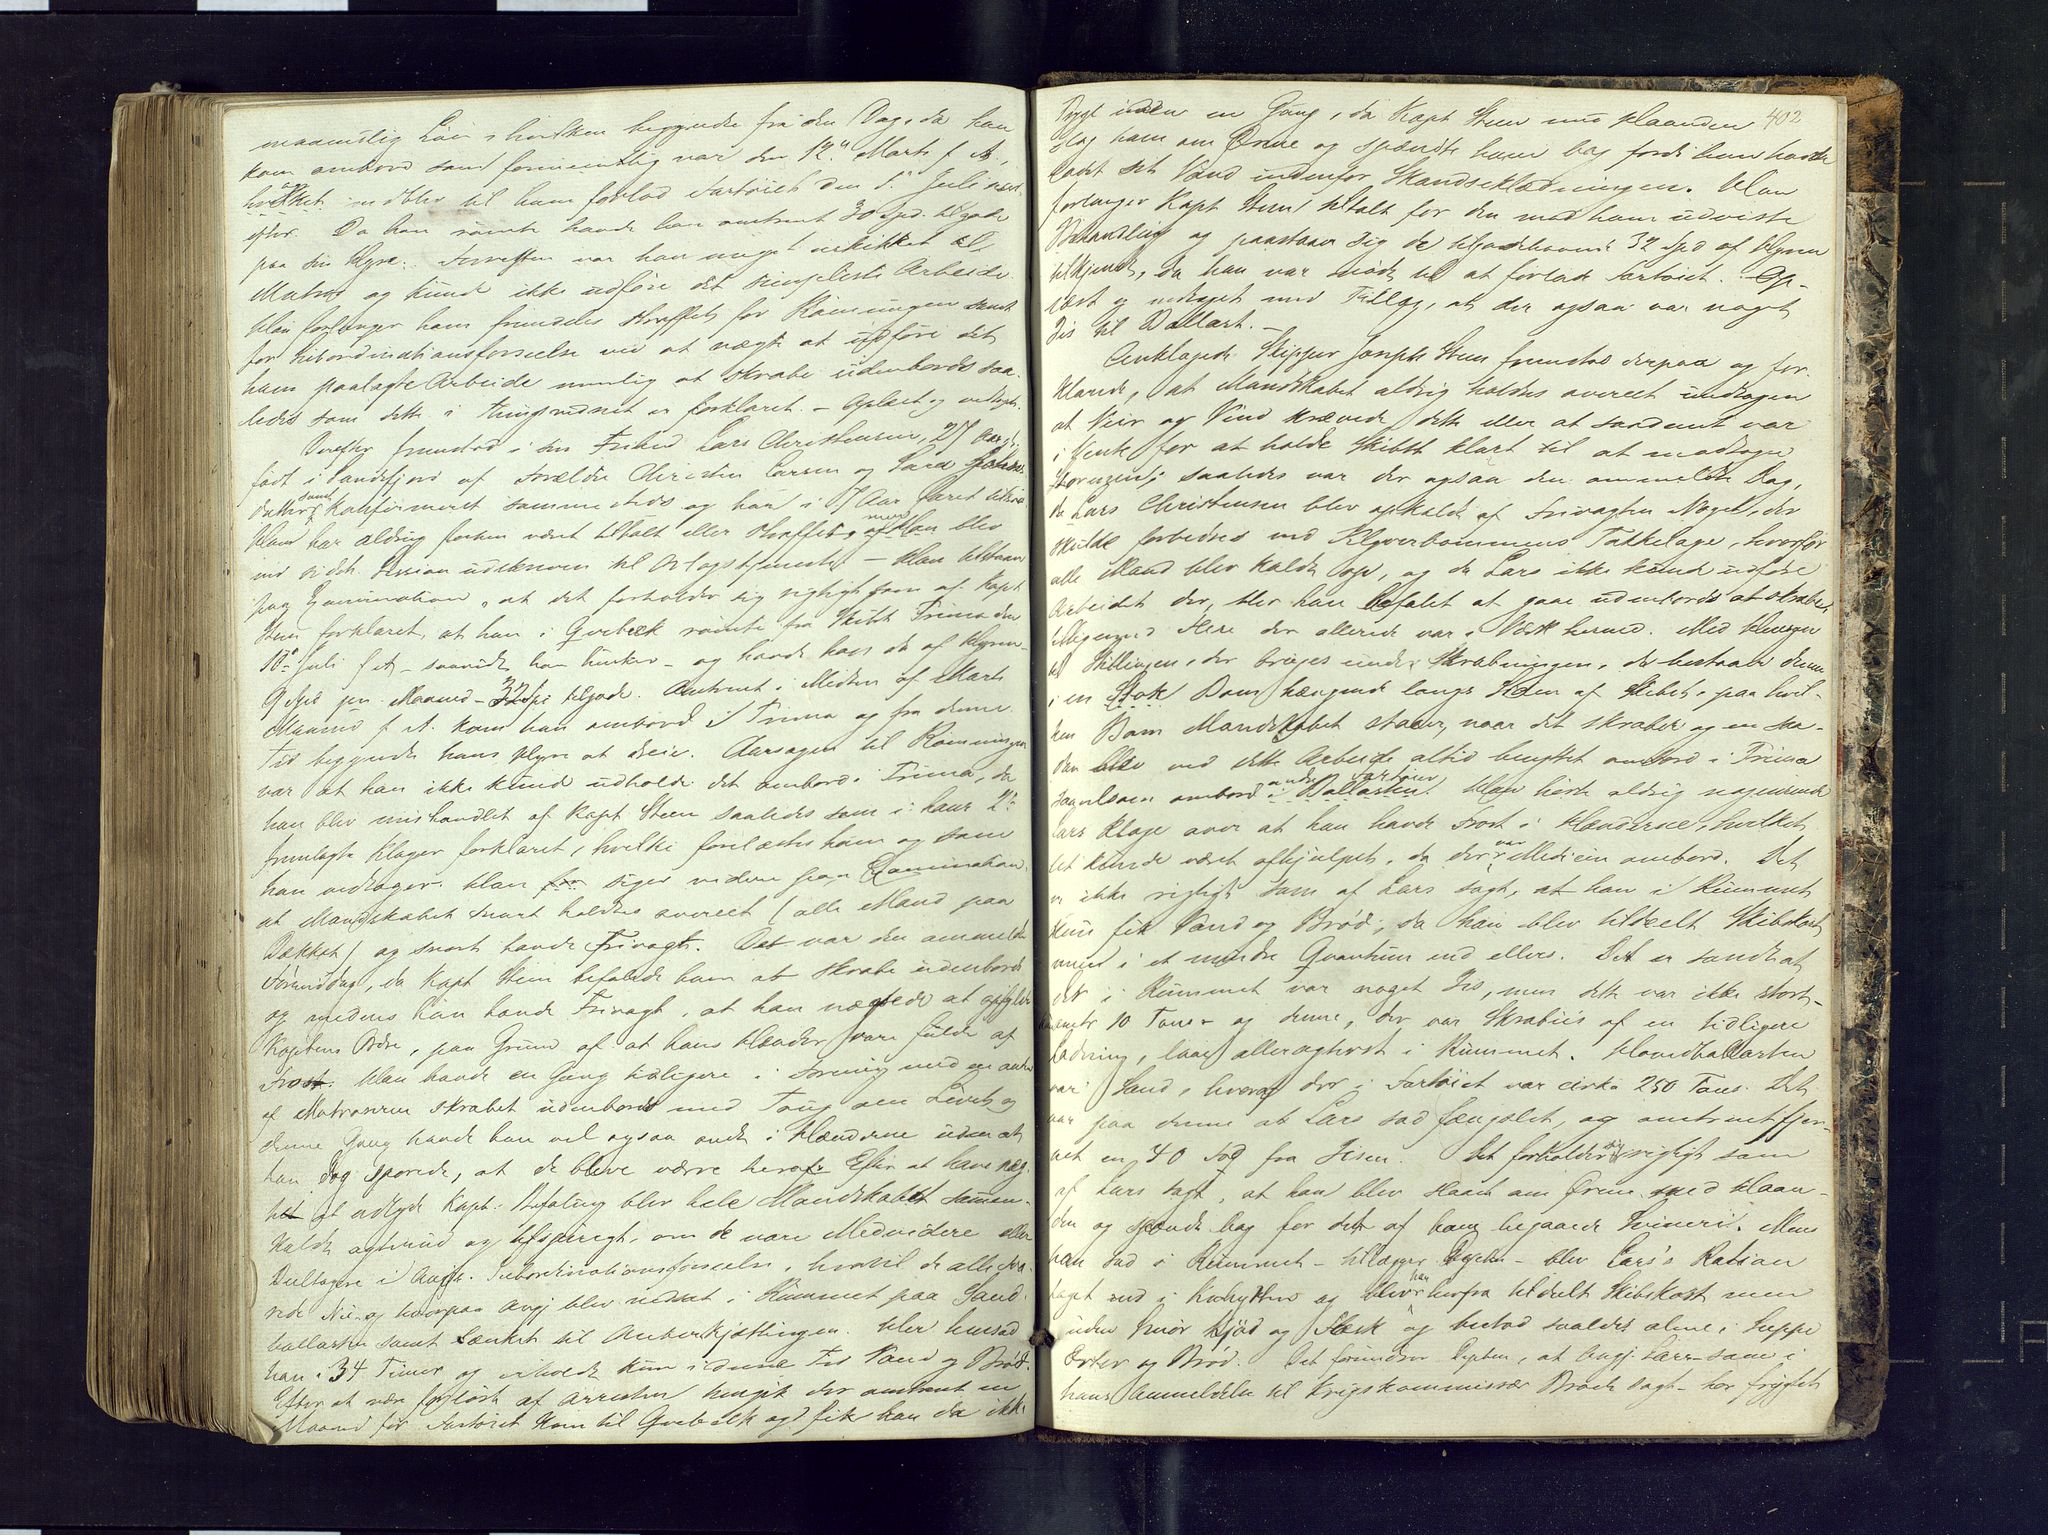 maanedlig Løn, hvilken begyndte fra den Dag, da han
kom ombord som formentlig var den 12te Marts f. A.,
hvilket vedblev til han forlod Fartøiet den 5te Juli næst-
efter. Da han rømte havde han omtrent 30 Spd. tilgode
paa sin Hyre. Forresten var han uskikket til
Matros og kunde ikke udføre det simpleste Arbeide
Han forlanger ham fremdeles straffet for Rømningen samt
for Subordinationsforseelse ved at nægte at udføre det
ham paalagte Arbeide nemlig at skrabe udenbords saa-
ledes som dette i Tingsvidnet er forklaret. – Oplæst og vedtaget.
Derefter fremstod i sin Frihed Lars Christensen, 27 Aar gl.
født i Sandefjord af Forældre Christen Larsen og
datter samt konfirmeret sammesteds og har i 7 Aar faret tilsøes
Han har aldrig forhen været tiltalt eller straffet, men Han blev
ved sidste Session udskreven til Orlogstjeneste – Han tilstaar
paa Examination, at det forholder sig rigtigt som af Kapt
Steen forklaret, at han i Qvebæk rømte fra Skibet Trima den
10de Juli f A – saavidt han husker – og havde han da af Hyren –
9 Spd pr. Maaned – 32 Spd tilgode. Omtrent i Medten af Marts
Maaned f. A. kom han ombord i Trima og fra denne
Tid begyndte hans Hyre at dreie. Aarsagen til Rømningen
var at han ikke kunde udholde det ombord i Trima, da
han blev mishandlet af Kapt Steen saaledes som i hans 2de
fremlagte Klager forklaret, hvilke forelæstes ham og som
han vedtager. Han sagt siger videre paa Examination,
at Mandskabet snart holdtes overeet (alle Mand paa
Dækket) og snart havde Frivagt. Det var den ommeldte
Formiddag, da Kapt Steen befalede ham at skrabe udenbords
og medens han havde Frivagt, at han nægtede at opfylde
Kaptens Ordre, paa Grund af at hans Hænder vare fulde af
Frost. Han havde en Gang tidligere i Forening med en anden
af Matroserne skrabet udenbords med Toug om Livet og
denne Gang havde han vel ogsaa ondt i Hænderne uden at
han dog sporede, at de bleve værre heraf. Efter at have næg-
tet at adlyde Kapt. Befaling blev hele Mandskabet sammen-
kaldt agterud og tilspurgt, om de vare Medvidere eller
Deltagere i Angj. Subordinationsforseelse, hvortil de alle sva-
rede Nei og hvorpaa Angj blev nedsat i Rummet paa Sand-
ballasten samt Lænket til Ankerkjættingen. Her hensad
han i 34 Timer og erholdt kun i denne Tid Vand og Brød.
Efter at være forløst af Arresten hengik der omtrent en
Maaned før Fartøiet kom til Qvebæk og fik han da ikke
402
Prygl uden en Gang, da Kapt Steen med Haanden
slog ham om Ørene og spændte ham bag fordi han havde
ladet sit Vand indenfor Skandseklædningen. Han
forlanger Kapt Steen tiltalt for den mod ham udviste
Behandling og paastaar sig de tilgodehavende 32 Spd af Hyren
tilkjendt, da han var nødt til at forlade Fartøiet. Op-
læst og vedtaget med Tillæg, at der ogsaa var noget
Iis til Ballast. –
Anklagede Skipper Joseph Steen fremstod derpaa og for-
klarede, at Mandskabet aldrig holdtes overeet undtagen
at Veir og Vind krævede dette eller at saadant var
i Vente for at holde Skibet klart til at modtage
Stormen; saaledes var det ogsaa den ommeldte Dag,
da Lars Christensen blev opkaldt af Frivagten Noget, der
skulde forbedres ved Klyverbommens Takkelage, hvorfor
alle Mand blev kaldt op, og da Lars ikke kunde udføre
Arbeidet der, blev han befalet at gaae udenbords at skrabe,
eftersom Flere der allerede var i Værk hermed. Med Hensyn
til Stillingen, der bruges under Skrabningen, da bestaar denne
i en Stok Bom hængende langs Siden af Skibet, paa hvil-
ken Bom Mandskabet staaer, naar det skraber og en saa-
dan blev ved dette Arbeide altid benyttet ombord i Trima
saavelsom ombord i andre Fartøier Ballasten. Han hørte aldrig nogensinde
Lars klage over at han havde Frost i Hænderne, hvilket
let kunde været afhjulpet, da der var Medicin ombord. Det
er ikke rigtigt som af Lars sagt, at han i Rummet
kun fik Vand og Brød, da han blev tildeelt Skibskost
men i et mindre Qvantum end ellers. Det er sandt at
der i Rummet var noget Iis, men dette var ikke stort –
omtr 10 Tons – og denne, der var Skrabiis af en tidligere
Ladning, laae alleragterst i Rummet. Hovedballasten
var Sand, hvoraf der i Fartøiet var cirka 250 Tons. Det
var paa denne at Lars sad fængslet, og omtrent fjer-
net en 40 Fod fra Iisen. Det forholder sig rigtigt som
af Lars sagt, at han blev slaaet om Ørene med Haan-
den og spændt bag for det af ham begaaede Svineri. Mens
han sad i Rummet – tillægger Depten – blev Lars's Ration
taget ind i Kahytten og blev han herfra tildelt Skibskost men
uden Smør Kjød og Flesk og bestod saaledes alene i Suppe
Erter og Brød. Det forundrer Depten, at Angj. Lars – som i
hans Anmeldelse til Krigskommissær Brock sagt – har frygtet